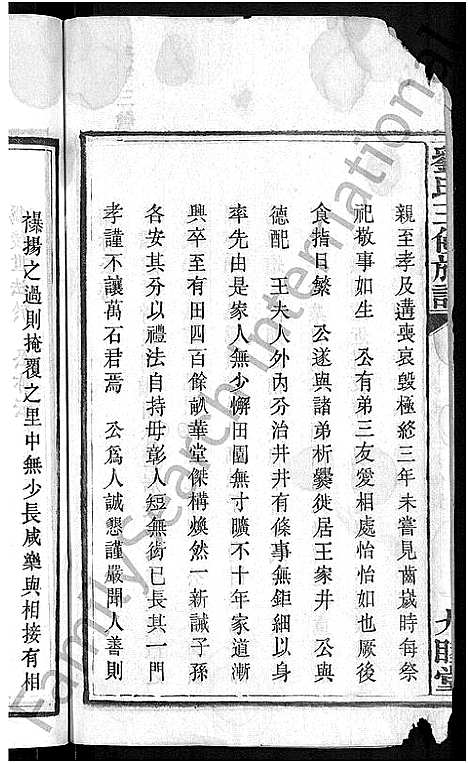 劉氏三修族譜
親至孝及遘喪哀毀極終三年未嘗見齒歲時每祭
祀敬事如生 公有弟三友愛相處怡怡如也厥後
食指日繁 公遂與諸弟析爨徙居王家井 公與
德配 王夫人外內分治井井有條事無鉅細以身
率先由是家人無少懈田園無寸曠不十年家道漸
興卒至有田四百餘畝華堂傑構煥然一新誡子孫
各安其分以禮法自持毋彰人短無衒已長其一門
孝謹不讓萬石君焉 公爲人誠懇謹嚴聞人善則
襮揚之過則掩覆之里中無少長咸樂與相接有相
FamilySearch International